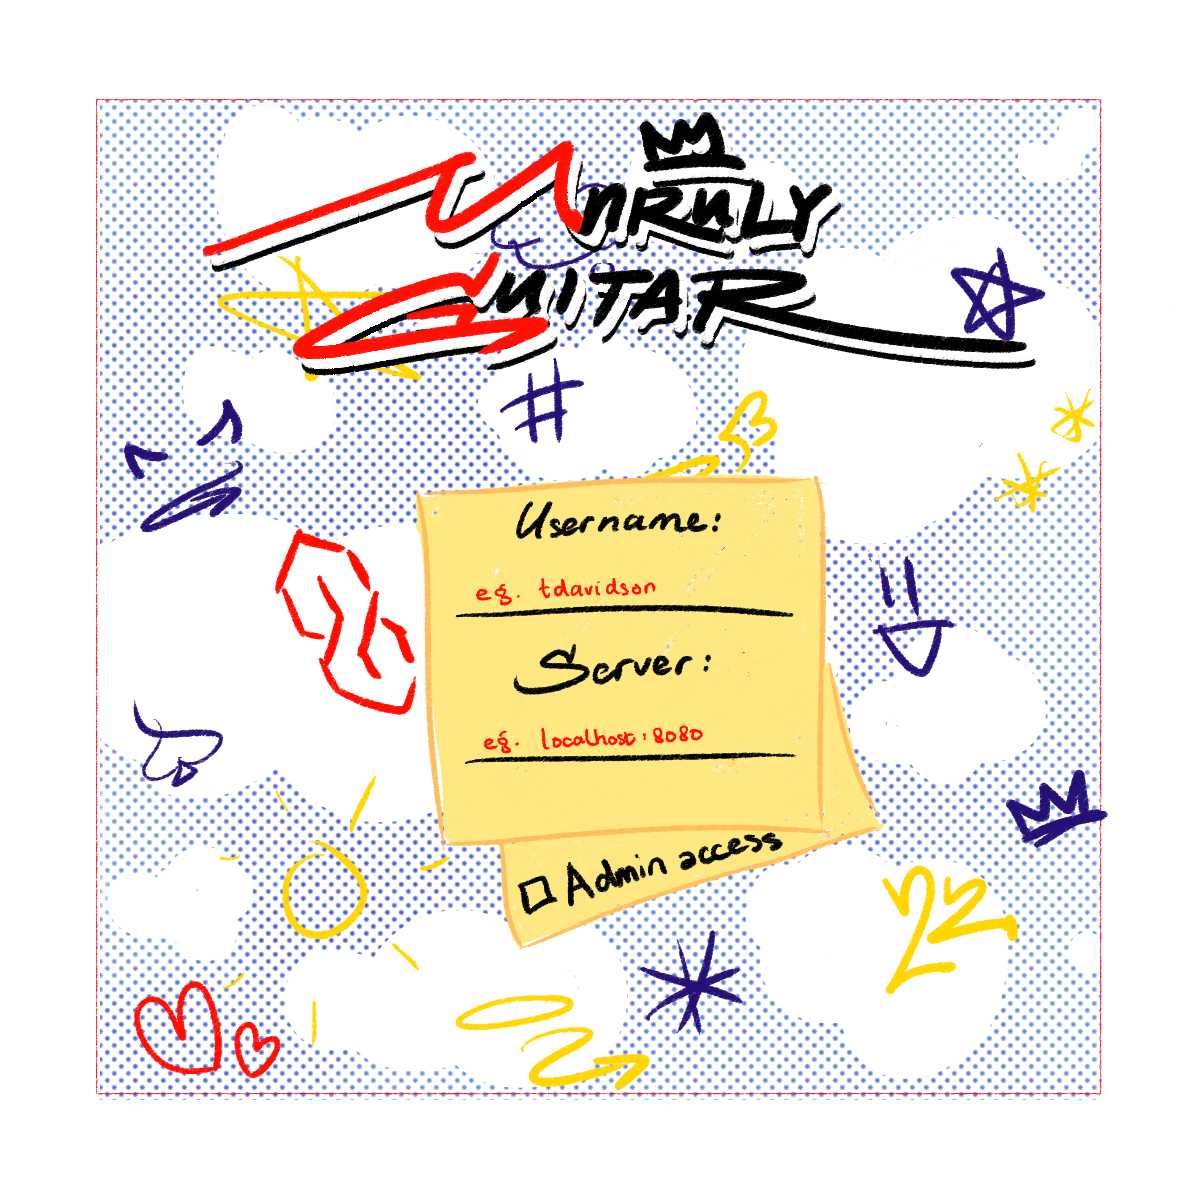 UNRULY
GUITAR
#
Username:
eg. tdavidson
Server:
eg. localhost:8080
Admin access